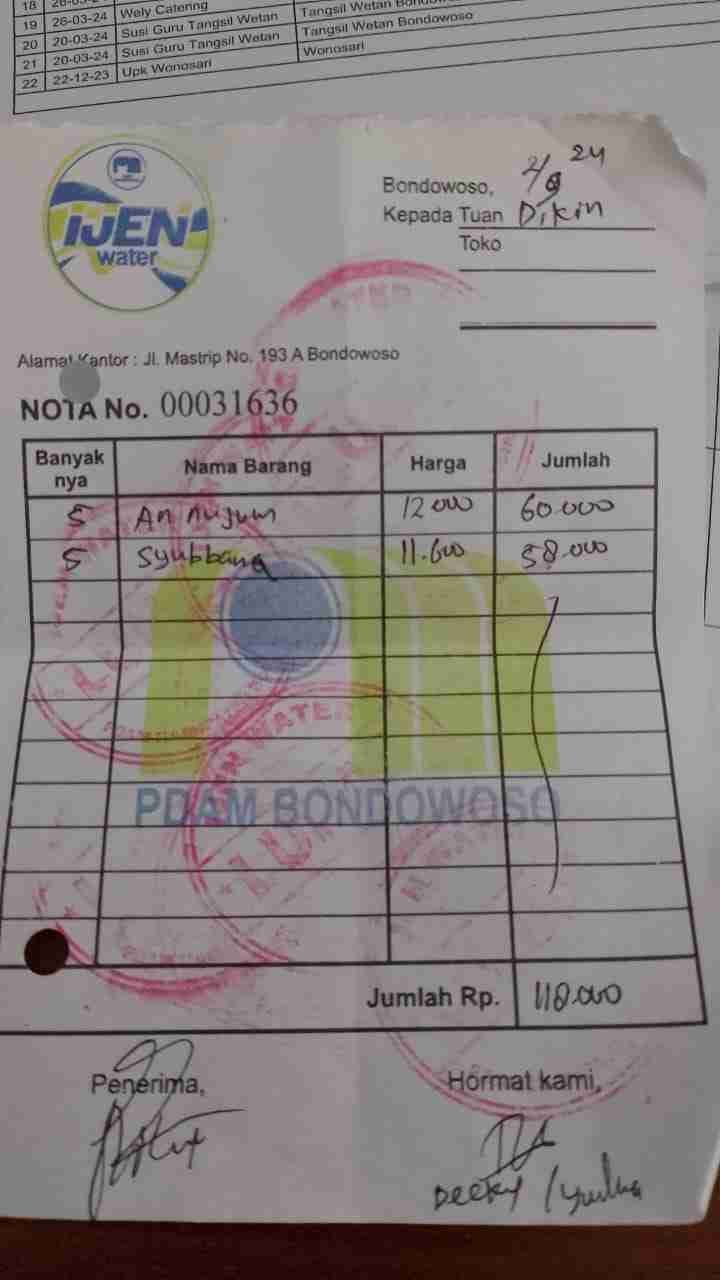 18
19 26-03-24 Wely Catering Tangsil Wetan
20 20-03-24 Susi Guru Tangsil Wetan Tangsil Wetan Bondowoso
21 20-03-24 Susi Guru Tangsil Wetan Wonosari
22 22-12-23 Upk Wonosari
IJEN
water
Bondowoso, 24
Kepada Tuan Dikin
Toko
Alamat Kantor : Jl. Mastrip No. 193 A Bondowoso
NOTA No. 00031636
Banyak nya Nama Barang Harga Jumlah
5 An nujum 12.000 60.000
5 Syubbana 11.600 58.000
PDAM BONDOWOSO
Jumlah Rp. 118.000
Penerima, Hormat kami,